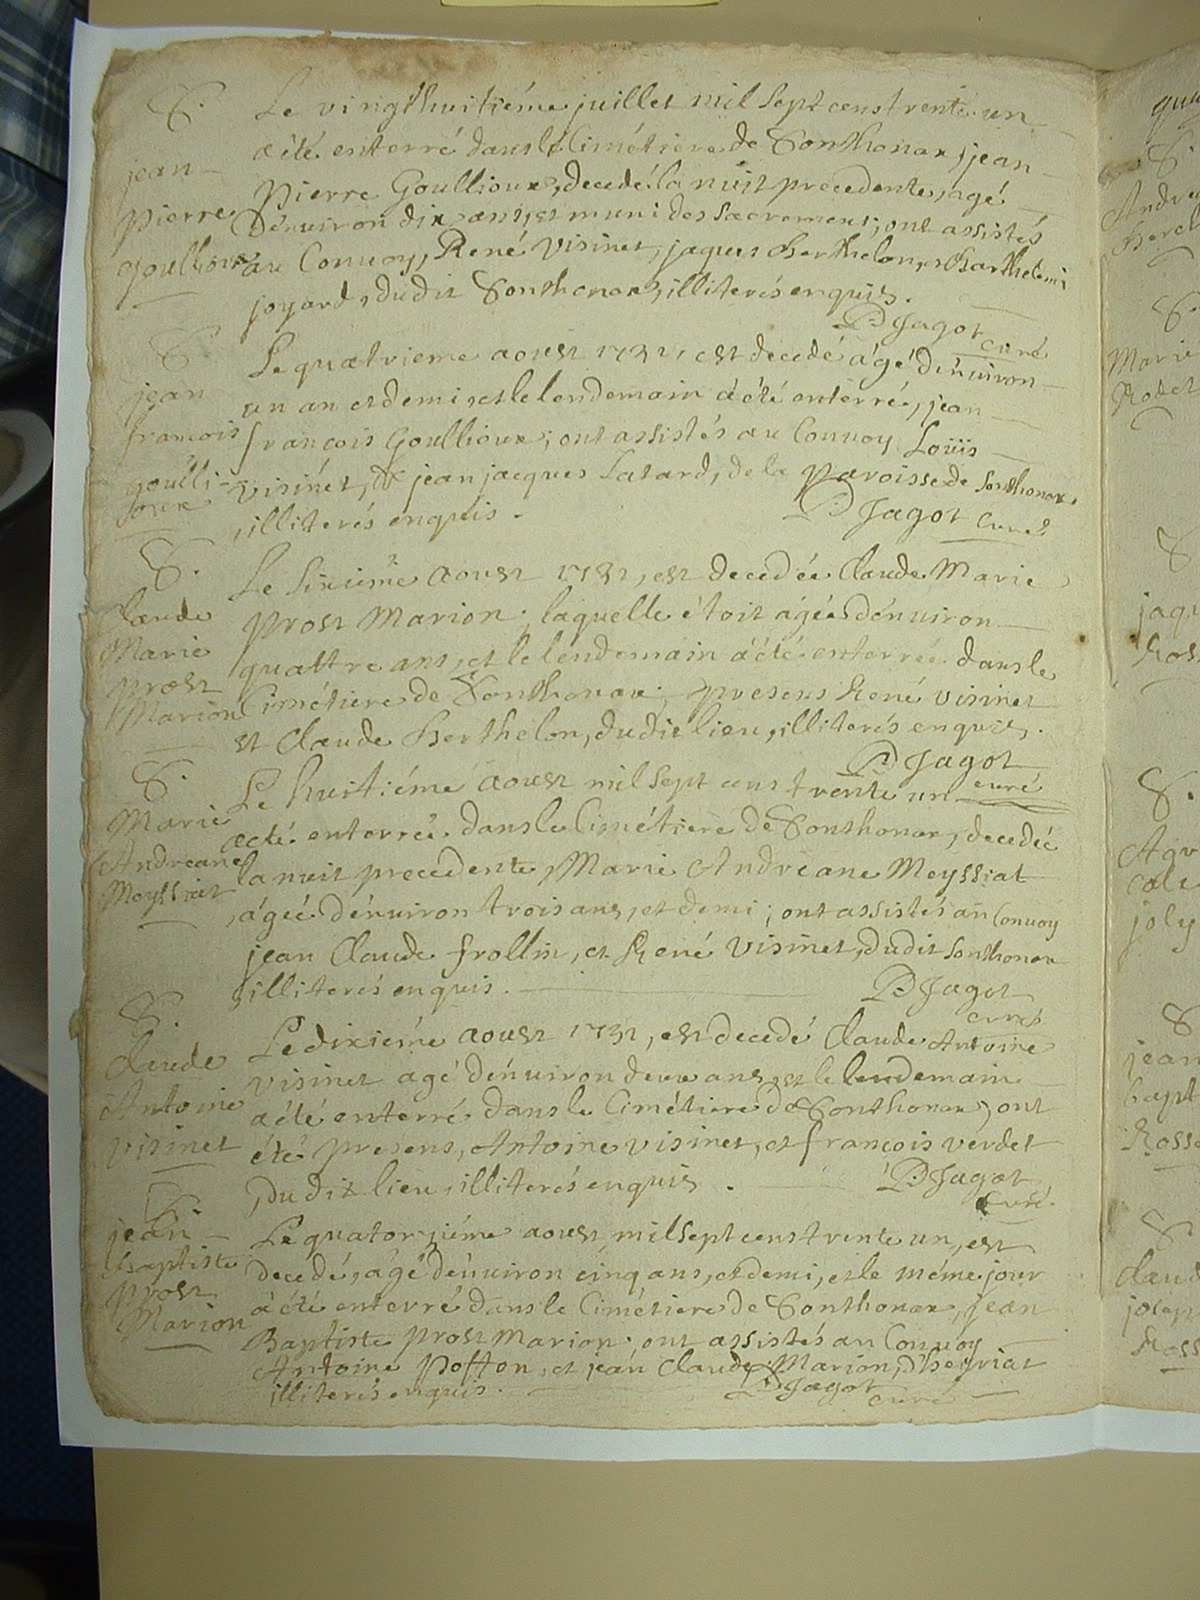 S.
jean
pierre
goullioux
Le vingt huitiéme juillet mil sept cens trente un
a été enterré dans le Cimétiere de Sonthonax, jean
Pierre Goullioux, decedé la nuit precedente, agé
d'énuiron dix ans, et muni des sacremens; ont assistés
au Conuoy, René Visinet, jaques Berthelon, et Barthelemi
joyard, dudit Sonthonax, illiterés enquis.
P Jagot
curé
S.
jean
francois
goulli-
oux
Le quatrieme aoust 1731, est decedé ágé d'énuiron
un an et demi, et le lendemain á été enterré, jean
françois Goullioux; ont assistés au Conuoy Loüis
Visinet, et jean jacques Satard, de la Paroisse de Sonthonax,
illiterés enquis.
P Jagot Curé
S.
Claude
Marie
prost
Marion
Le sixiéme aoust 1731, est decedée Claude Marie
prost Marion, laquelle étoit ágée d'énuiron
quattre ans, et le lendemain á été enterrée dans le
Cimétiere de Sonthonax; presens René Visinet
et Claude Berthelon, dudit lieu, illiterés enquis.
P Jagot
curé
S.
Marie
Andreane
Meyssiat
Le huitiéme aoust mil sept cens trente un
a été enterrée dans le Cimétiere de Sonthonax, decedée
la nuit precedente, Marie Andreane Meyssiat
, ágée d'énuiron trois ans, et demi; ont assistés au Conuoy
jean Claude frollin, et René Visinet, dudit Sonthonax
illiterés enquis.
P Jagot
curé
S.
Claude
Antoine
Visinet
Le dixiéme aoust 1731, est decedé Claude Antoine
Visinet agé d'énuiron deux ans, et le lendemain
a été enterré dans le Cimétiere de Sonthonax, ont
été presens, Antoine visinet, et françois verdet
, du dit lieu, illiterés enquis.
P Jagot
Curé.
S.
jean
Baptiste
prost
Marion
Le quatorziéme aoust mil sept cens trente un, est
decedé, agé d'énuiron cinq ans, et demi, et le méme jour
á été enterré dans le Cimétiere de Sonthonax, jean
Baptiste prost Marion; ont assistés au Conuoy
Antoine Poffon, et jean Claude Marion, d'heyriat
illiterés enquis.
P Jagot
curé
S.
S.
Marie
S.
S.
joly
S.
jean
S.